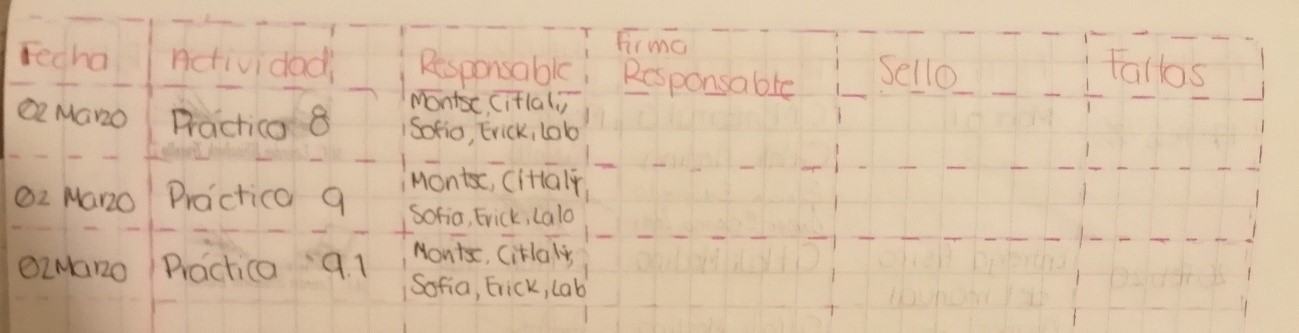 Fecha Actividad Responsable Firma Responsable Sello Faltas
02 Marzo Práctica 8 Montse, Citlaly, Sofia, Erick, Lalo
02 Marzo Práctica 9 Montse, Citlaly, Sofia, Erick, Lalo
02 Marzo Práctica 9.1 Montse, Citlaly, Sofia, Erick, Lalo